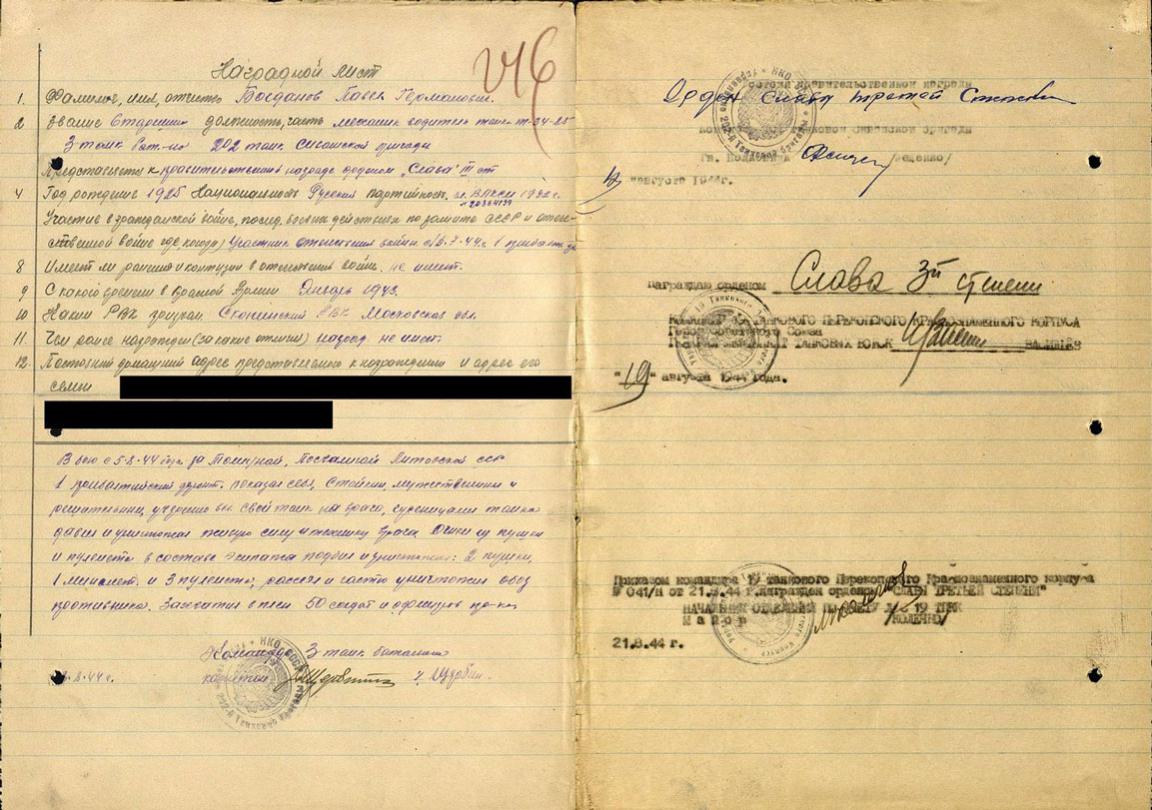 Наградной лист
V46
1. Фамилия, имя, отчество Богданов Павел Германович.
2 Звание Старшина должность, часть механик водитель танка т-34-85
3 танк бат-на 202 танк бригады
Представляется к правительственной награде орденом "Слава" III ст
4 Год рождения 1925 Национальность Русский партийность
Участие в гражданской войне, послед. боевых действиях по защите СССР и отече-
ственной войне где, когда) Участник отечествен войны с 1 прибалт
8 Имеет ли ранения и контузии в отечествен войне. не имеет.
9 С какого времени в Красной Армии Январь 1943.
10 Каким РВК призван. РВК Московская обл.
11 Чем ранее награжден (за какие отличия) наград не имеет
12. Постоянный домашний адрес представляемого к награждению и адрес его
семьи
В бою с 5.8.44 года за Литовской сср
1 прибалтийский фронт. показал себя, Стойким, мужественным и
решительным, уверенно вел свой танк на врага, гусеницами танка
давил и уничтожал живую силу и технику врага. Огнем из пушки
и пулемета в составе экипажа подбил и уничтожил: 2 пушки,
1 миномет и 3 пулемета, рассеял и частью уничтожил обоз
противника. Захватил в плен 50 солдат и офицеров пр-ка
Командир 3 танк батальона
капитан
8.44 г.
Орден Славы третьей Степени
августа 1944г.
Награждаю орденом Слава 3й степени
КОМАНДИР 19 ТАНКОВОГО ПЕРЕКОПСКОГО КРАСНОЗНАМЕННОГО КОРПУСА
Герой Советского Союза
ГЕНЕРАЛ-ЛЕЙТЕНАНТ ТАНКОВЫХ ВОЙСК ВАСИЛЬЕВ
"19" августа 1944 года.
Приказом командира 19 танкового Перекопского Краснознаменного корпуса
№ 041/н от 21.8.44 г. награжден орденом "СЛАВЫ ТРЕТЬЕЙ СТЕПЕНИ"
НАЧАЛЬНИК ОТДЕЛЕНИЯ ПО УЧЕТУ 19 ТПКК
Майор /КОЛЕЧКО/
21.8.44 г.